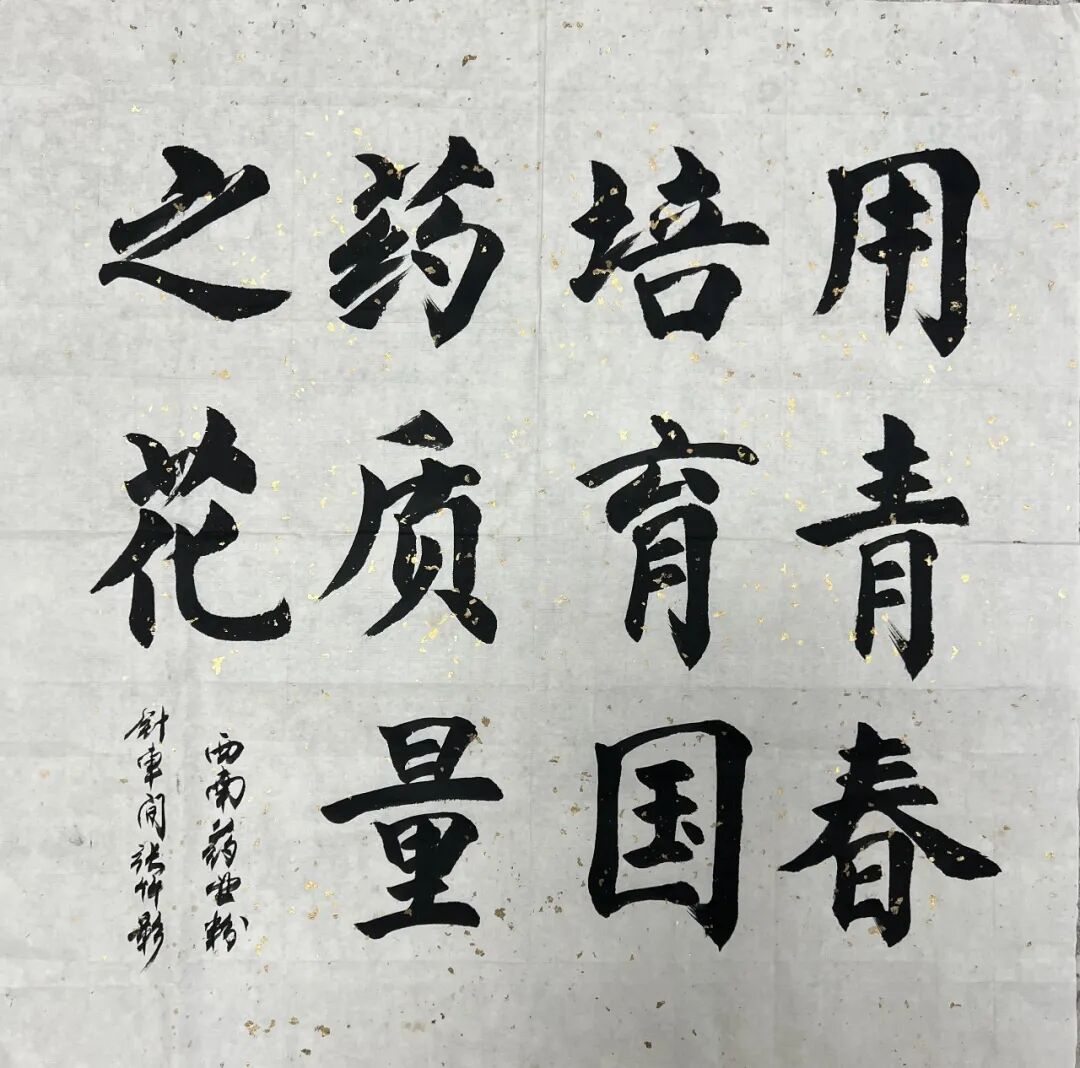 用青春
培育国
药质量
之花
西南药业粉
针车间张仲影